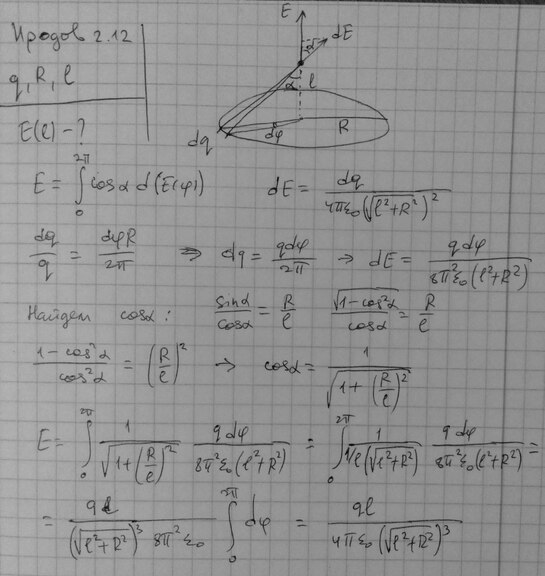 Иродов 2.12
q, R, l
E(l) - ?
E dE α α l dq dφ R
E = ∫₀^{2π} cosα d(E(φ)) dE = dq / (4πε₀(√(l²+R²))²)
dq/q = dφR/2π ⇒ dq = qdφ/2π → dE = qdφ / (8π²ε₀(l²+R²))
Найдем cosα: sinα/cosα = R/l √(1-cos²α)/cosα = R/l
(1-cos²α)/cos²α = (R/l)² → cosα = 1/√(1+(R/l)²)
E = ∫₀^{2π} 1/√(1+(R/l)²) qdφ/(8π²ε₀(l²+R²)) = ∫₀^{2π} 1/(1/l(√(l²+R²))) qdφ/(8π²ε₀(l²+R²)) =
= ql/((√(l²+R²))³ 8π²ε₀) ∫₀^{2π} dφ = ql/(4πε₀(√(l²+R²))³)